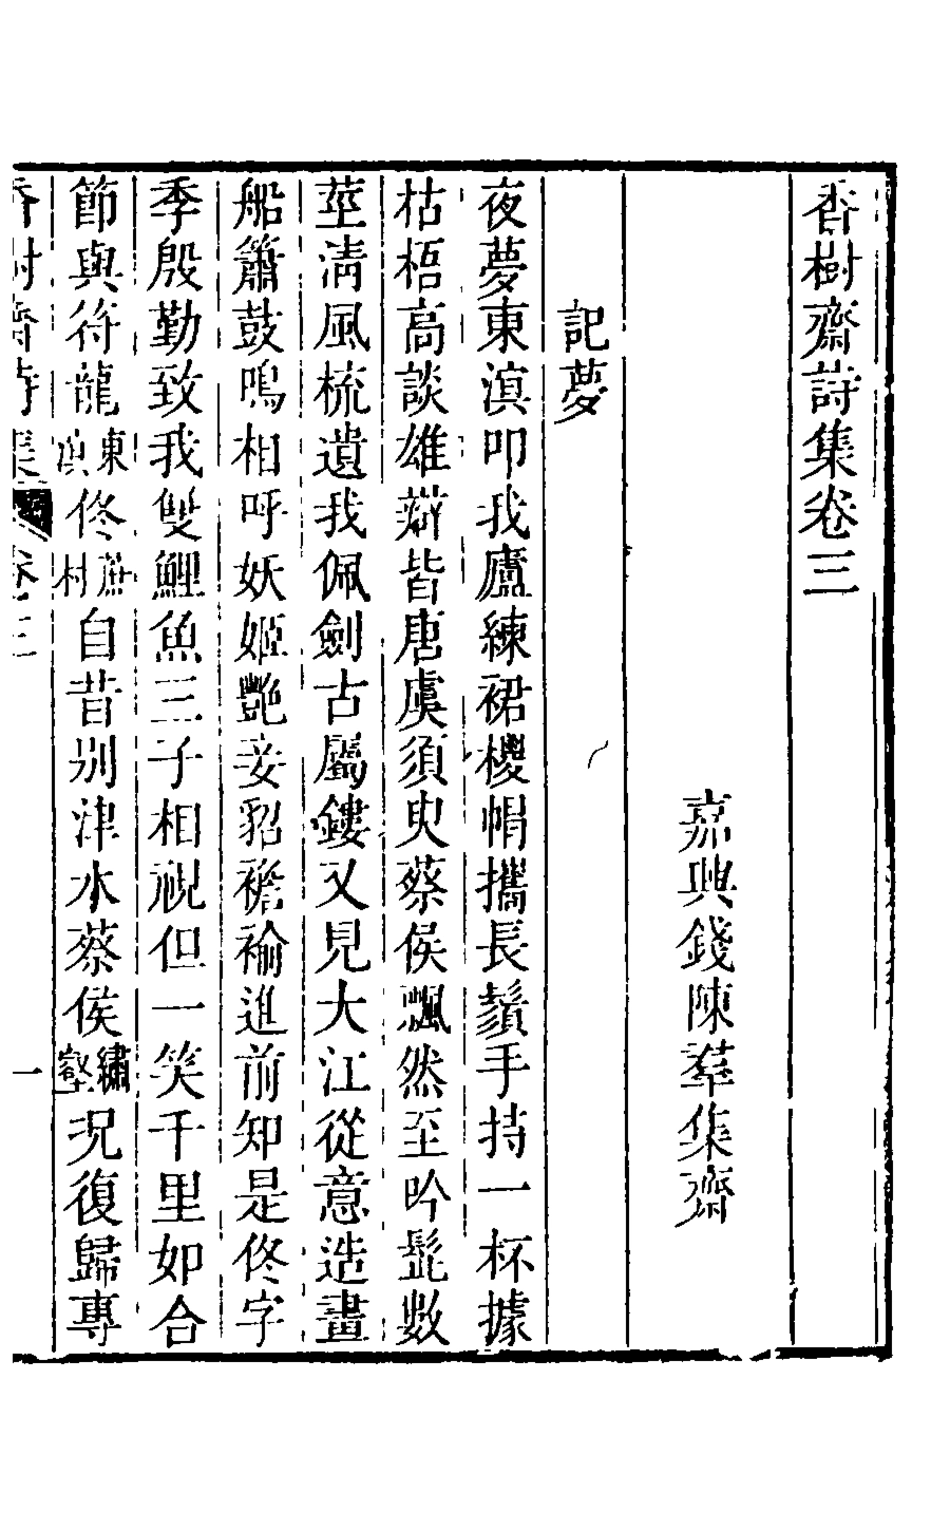 香樹齋詩集卷三
嘉興錢陳羣集齋
記夢
夜夢東滇叩我廬練裙椶帩攜長鬚手持一杯據
枯梧高談雄辯皆唐虞須臾蔡侯飄然至吟髭數
莖淸風梳遺我佩劍古屬鏤又見大江從意造畫
船簫鼓鳴相呼妖姬艷妾貂襜褕進前知是佟字
季殷勤致我雙鯉魚三子相視但一笑千里如合
節與符龍東滇佟蔗村自昔別津水蔡侯繡壑況復歸專
香樹齋詩集 卷三 一